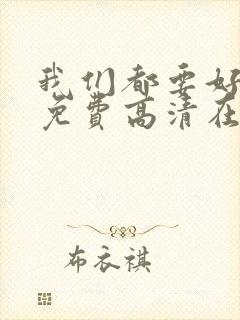 我们都要好
免费高清在
布衣祺